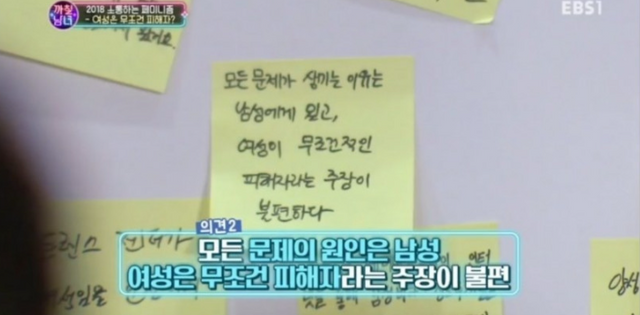 까칠남녀
2018 소통하는 페미니즘
- 여성은 무조건 피해자?
EBS1
모든 문제가 생기는 이유는
남성에게 있고,
여성이 무조건적인
피해자라는 주장이
불편하다
의견 2
모든 문제의 원인은 남성
여성은 무조건 피해자라는 주장이 불편